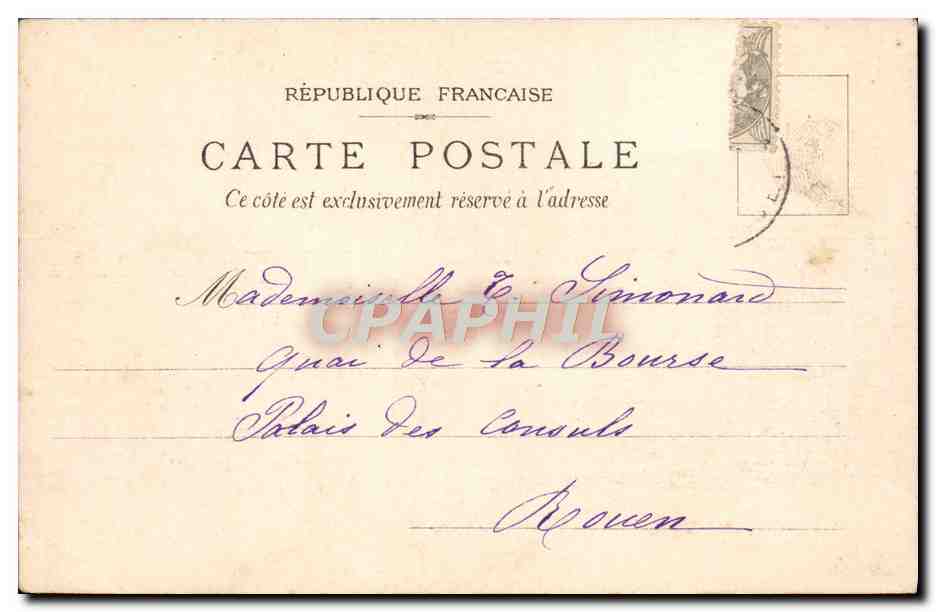 RÉPUBLIQUE FRANCAISE
CARTE POSTALE
Ce côté est exclusivement réservé à l'adresse
Mademoiselle E. Simonard
CPAPHIL
quai de la Bourse
Palais des Consuls
Rouen